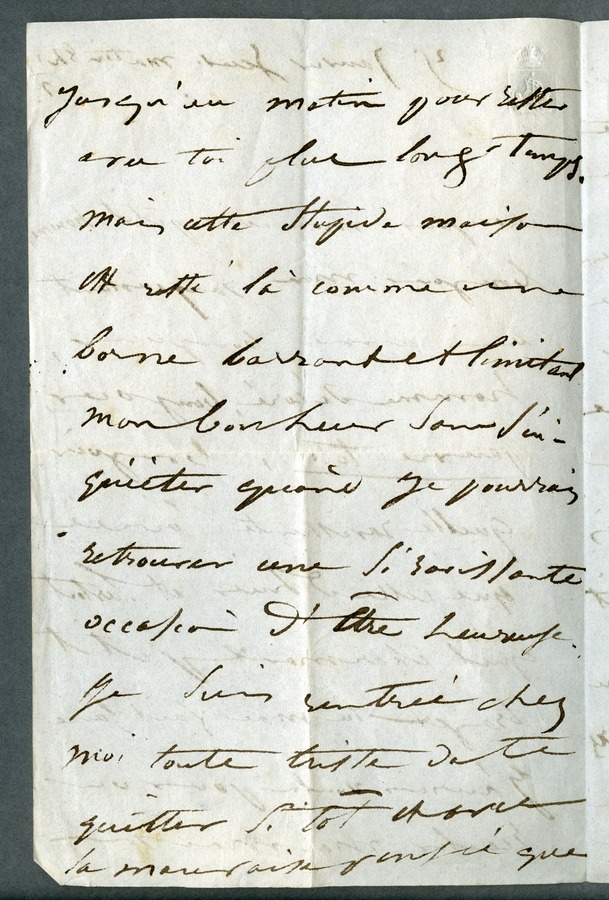 Jusqu'au matin pour rester
avec toi plus longs Temps.
mais cette Stupide maison
est resté là comme une
borne barrant et limitant
mon bonheur Sans S'in-
quiéter quand Je pourrais
retrouver une Si ravissante
occasion d'Être heureuse.
Je Suis rentrée chez
moi toute triste de te
quitter Si tôt et avec
la mauvaise pensée que